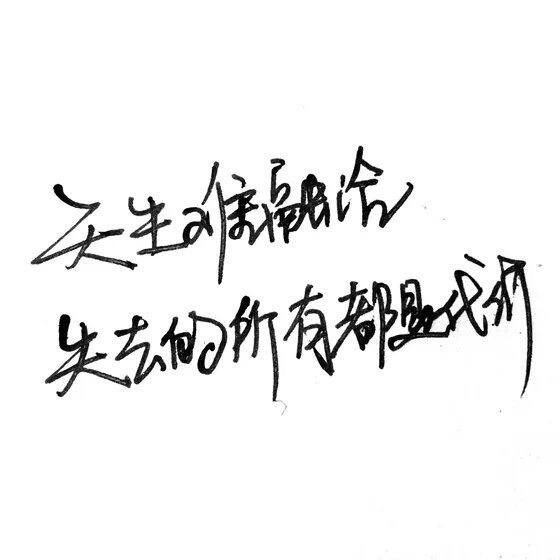 天生难融洽
失去的所有都是代价